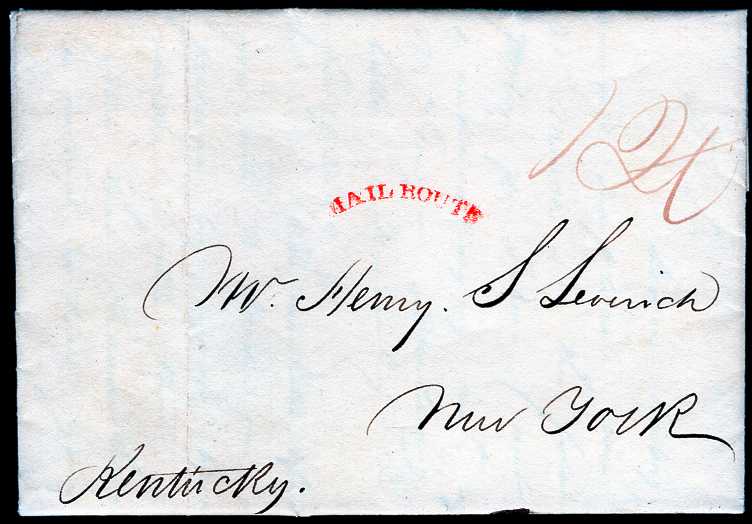 MAIL ROUTE
Mr. Henry. S Leverich
New York
Kentucky.